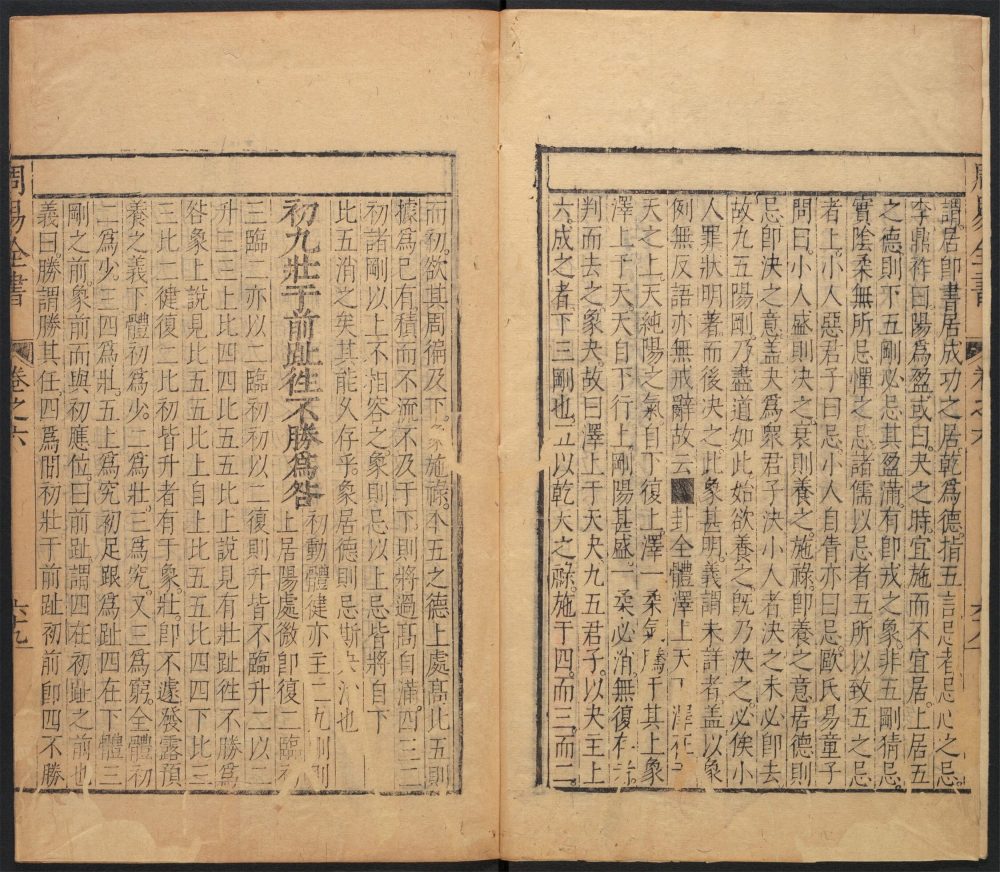 謂居卽書居成功之居乾爲德指五言忌者忌心之忌
李鼎祚曰陽爲盈或曰夬之時宜施而不宜居上居五
之德則下五剛必忌其盈滿有卽戎之象非五剛猜忌
實陰柔無所忌憚之忌諸儒以忌者五所以致五之忌
者上小人惡君子曰忌小人自眚亦曰忌歐氏易童子
問曰小人盛則決之衰則養之施祿卽養之意居德則
忌卽決之意蓋夬爲衆君子決小人者決之未必卽去
故九五陽剛乃盡道如此始欲養之旣乃決之必俟小
人罪狀明著而後決之此象其明義謂未詳者蓋以象
例無反語亦無戒辭故云卦全體澤上天
天之上天純陽之氣自下復上澤一柔氣騰于其上象
澤上于天天自下行上剛陽甚盛一柔必消無復存
判而去之之象夬故曰澤上于天夬九五君子以夬主上
六成之者下三剛也五以乾天之祿施于四而三而二
而初欲其周徧及下施祿本五之德上處高比五則
據爲已有積而不流不及于下則將過高自滿四三二
初諸剛以上不相容之象則忌以上忌皆將自下
比五消之矣其能久存乎象居德則忌斯也
初九壯于前趾徃不勝爲咎
初動體健亦主二九剛則
上居陽處微卽復二臨初
三臨二亦以二臨初以二復則升皆不臨升二以二
升三三上比四四比五五比上說見有壯趾徃不勝爲
咎象上說見比五五比上自上比五五比四四下比三
三比二二徤復二比初皆升者有于象壯卽不遽發露預
養之義下體初爲少二爲壯三爲究又三爲窮全體初
二爲少三四爲壯五上爲究初足跟爲趾四在下體三
剛之前象前而與初應位曰前趾謂四在初趾之前也
義曰勝謂勝其任四爲間初壯于前趾初前卽四不勝
周易全書
卷之六
六九